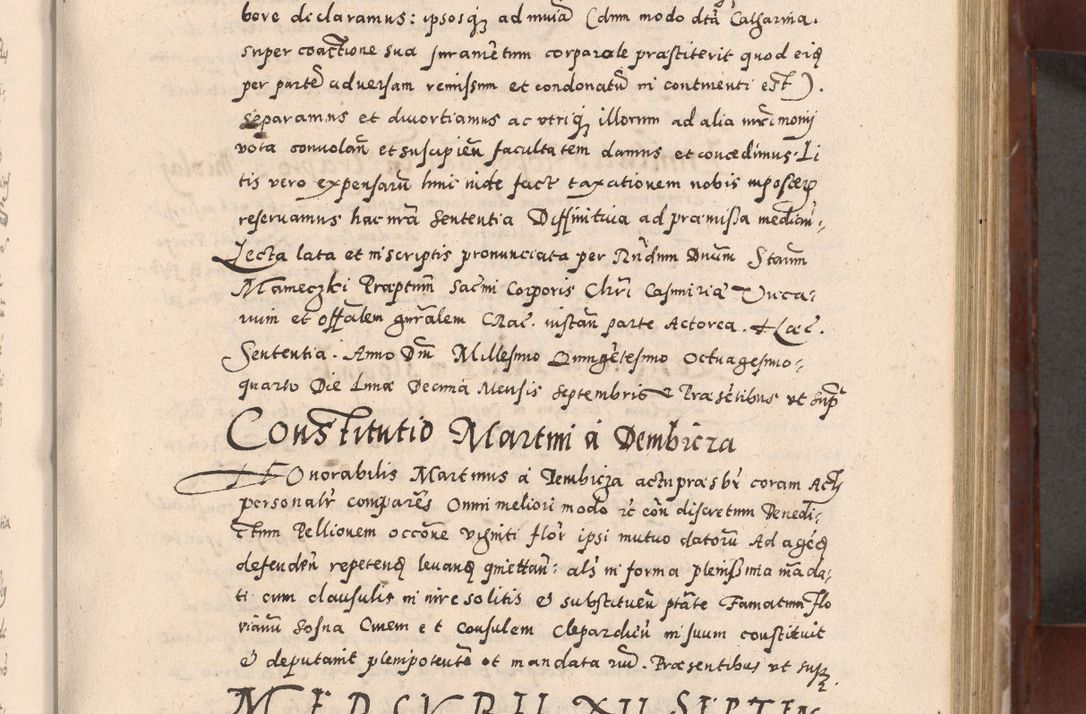 bere declaramus: ipsosq; ad inuicē (dum modo dcta Catharina.
super coactione sua Juramētum corporale præstiterit quod eiq
per partē aduersam remissum et condonatū in continenti est).
separamus et diuortiamus ac vtriq; illorum ad alia mrimonij
vota conuolan et suscipien facultatem damus et concedimus. Li
tis vero expensarū hinc inde fact taxationem nobis
reseruamus hac nrā Sententia Diffinitiua ad præmissa median
Lecta lata et in scriptis pronunciata per Rndum Dnum Stanm
Mameczki Præptum Sacmi Corporis Chri Casmiriæ Vica-
rium et offalem gnralem Crac. instan parte Actorea.
Sententia. Anno Dni Millesimo Quingētesimo Octuagesimo-
quarto Die Lunæ Decima Mensis Septembris Præsētibus vt sup
Constitutio Martini à Dembicza
Honorabilis Martinus à Dembicza actu præsbr coram Actis
personalr comparēs Omni meliori modo rc cōn discretum Benedi-
ctum Pellionem occōne viginti flor ipsi mutuo datorū Ad agēq
defendēn repetenq leuanq : als in forma plenissima māda-
ti cum clausulis in iure solitis & substituēn ptāte Famatum Flo
rianū Sosna Ciuem et Consulem Clepardien in suum constituit
& deputauit plenipotentē et mandata rm. Præsentibus vt supr.
MERCVRII XII SEPTEM